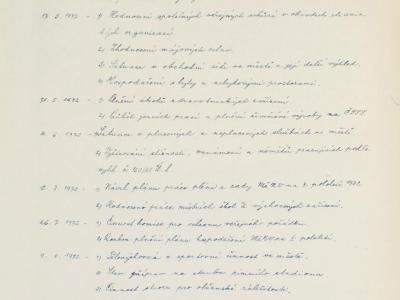 17. 5. 1972 - 1) Hodnocení společných veřejných schůzí v obvodech
ských organizací
2) Zhodnocení májových oslav
3) Situace v obchodní síti ve městě a její další výhled.
4) Hospodaření s byty a nebytovými prostorami.
31. 5. 1972 - 1) Plnění úkolů zdravotnických zařízení
2) Průběh jarních prací a plnění živočišné výroby na
6. 1972 - Situace v placených a neplacených službách ve městě
2) Vyřizování stížností, oznámení a námětů pracujících podle
vyhl. č. 150/58 Ú. l.
12. 7. 1972 - 1) Návrh plánu práce pléna a rady MěNV na 2. pololetí 1972.
2) Rozbor práce místních škol a výchovných zařízení.
26. 7. 1972 - 1) Činnost komise pro ochranu veřejného pořádku.
2) Rozbor plnění plánu hospodaření MěNV za 1. pololetí
9. 1972 - 1) Tělovýchovná a sportovní činnost ve městě.
2) Stav příprav na stavbu zimního stadionu
3) Činnost sboru pro občanské záležitosti.